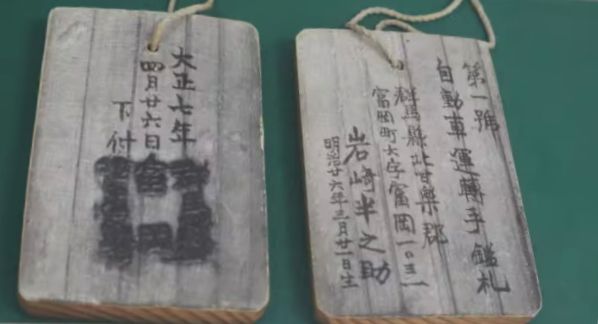 第一號
自動車運轉手鑑札
群馬縣北甘樂郡
富岡町大字富岡一〇三一
岩崎半之助
明治廿六年三月廿一日生
大正七年
四月廿六日
下付
富岡